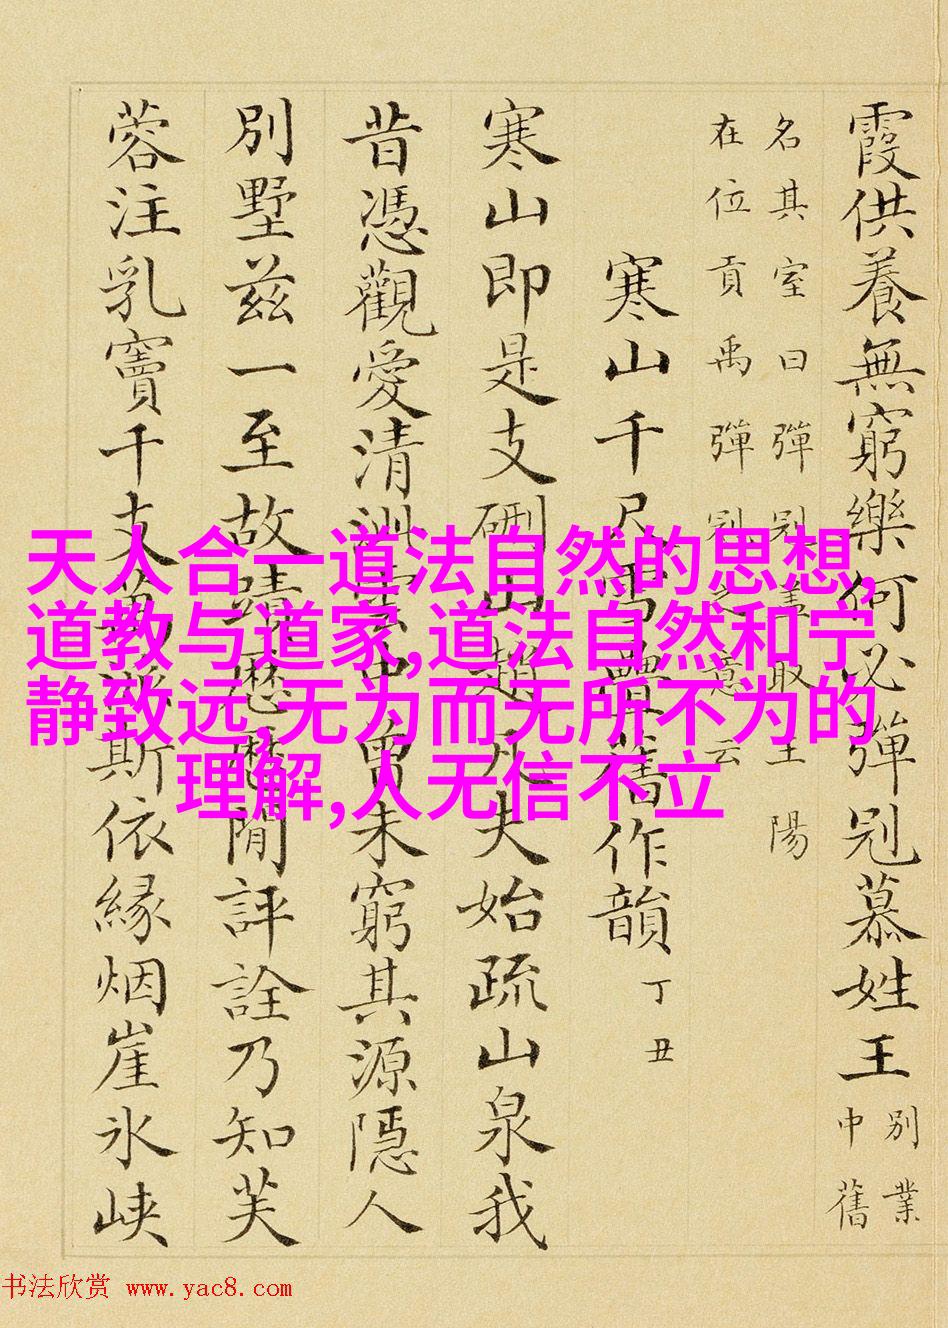 霞供養無窮樂何必彈冠慕姓王別業
中舊
名其室曰彈冠蓋取王陽
在位貢禹彈冠之意云
寒山千尺雪疊舊作韻丁丑
寒山即是支硎山趙凡夫始疏山泉我
昔憑觀愛清洲雪中曾未窮其源隱人
別墅茲一至故蹟歷歷閒評詮乃知芙
蓉注乳竇千支萬派斯依緣烟崖氷峽
天人合一道法自然的思想,
道教与道家,道法自然和宁
静致远,无为而无所不为的
理解,人无信不立
书法欣赏 www.yac8.com